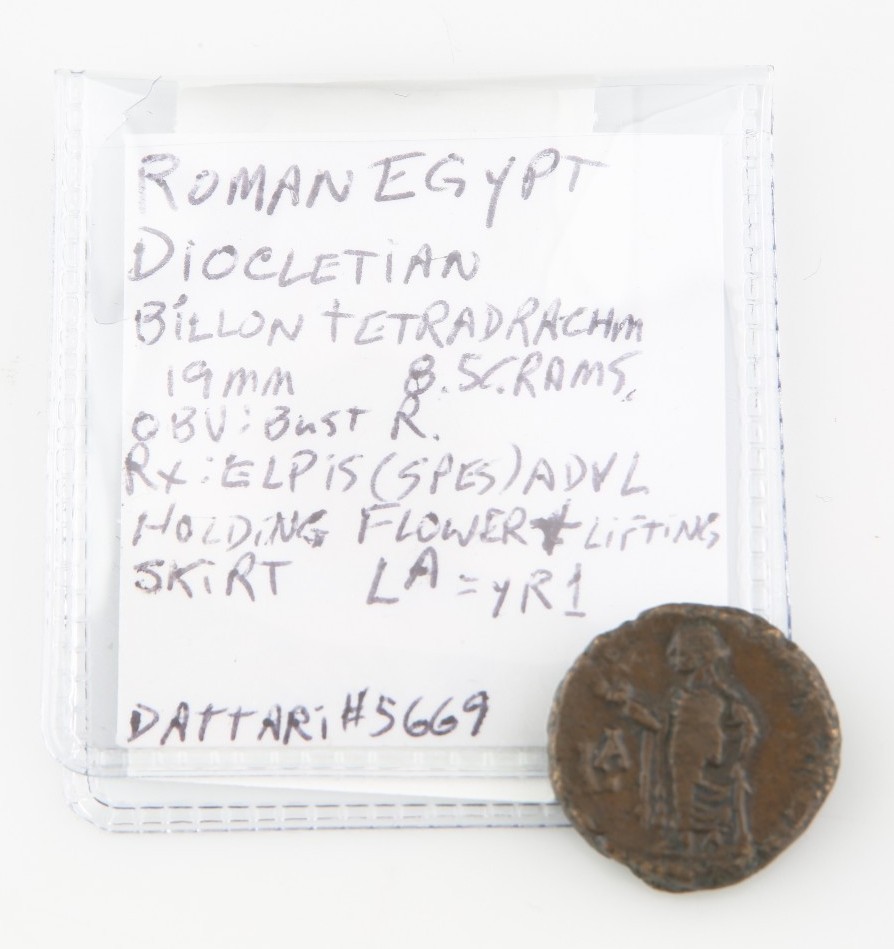 ROMAN EGYPT
DIOCLETIAN
BILLON TETRADRACHM
19mm 8.5GRAMS.
OBV: Bust R.
Rx: ELPIS (SPES) ADVL
HOLDING FLOWER + LIFTING
SKIRT LA = YR1
DATTARI #5669
LA